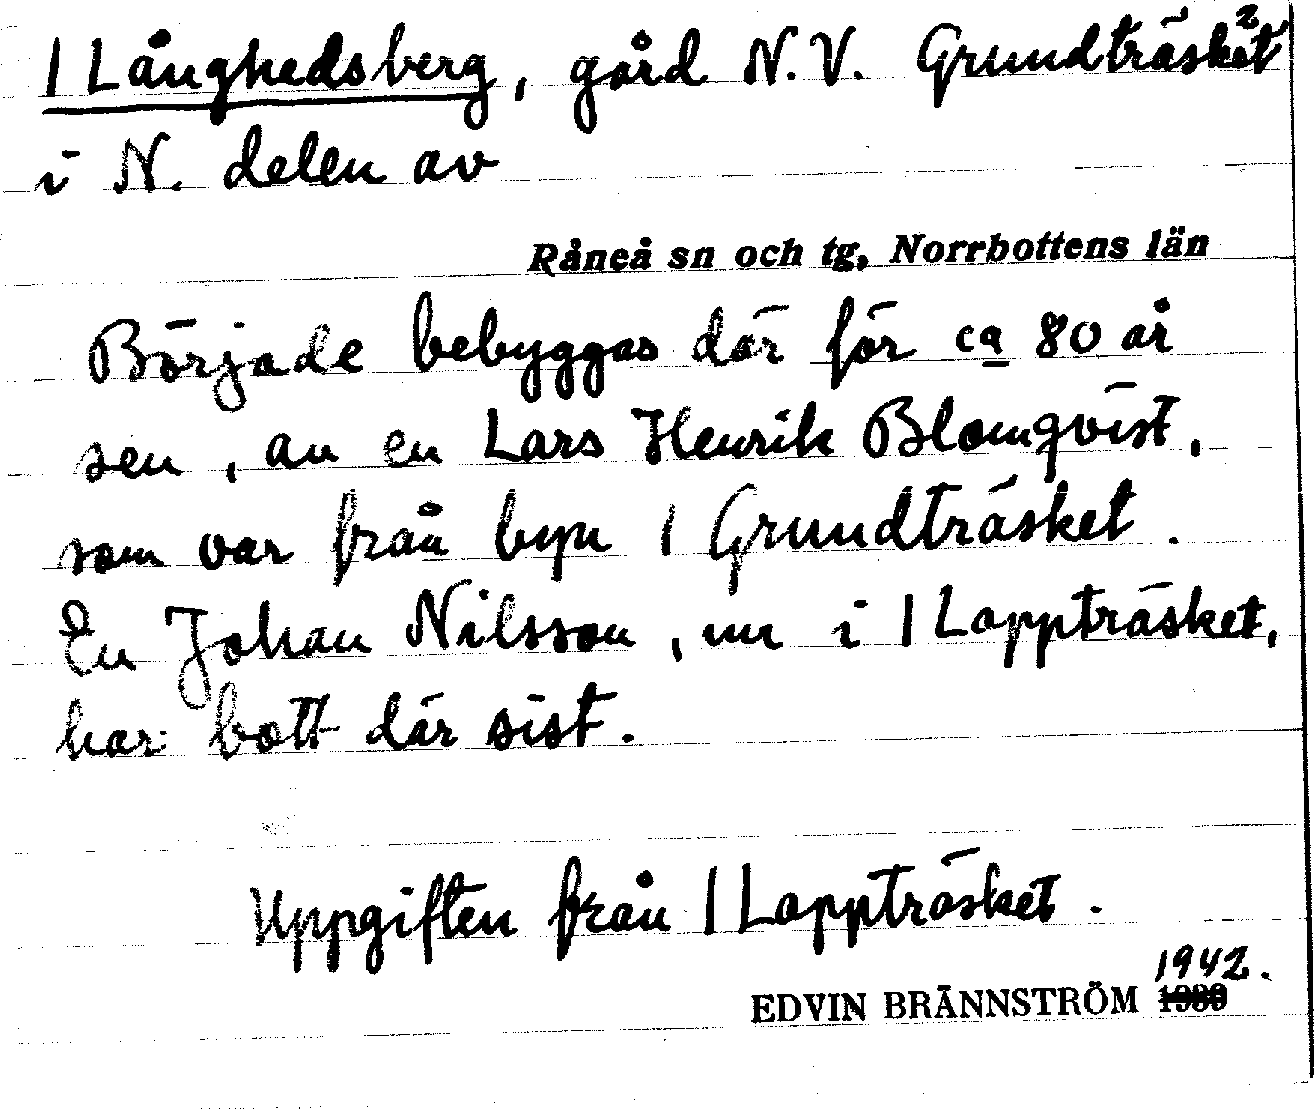 / Långhedsberg, gård N.V. Grundträsket²
i N. delen av
Råneå sn och tg, Norrbottens län
Började bebyggas där för ca 80 år
sen, av en Lars Henrik Blomqvist,
som var från byn / Grundträsket.
En Johan Nilsson, nu i / Lappträsket,
har bott där sist.
Uppgiften från / Lappträsket.
1942.
EDVIN BRÄNNSTRÖM 1930